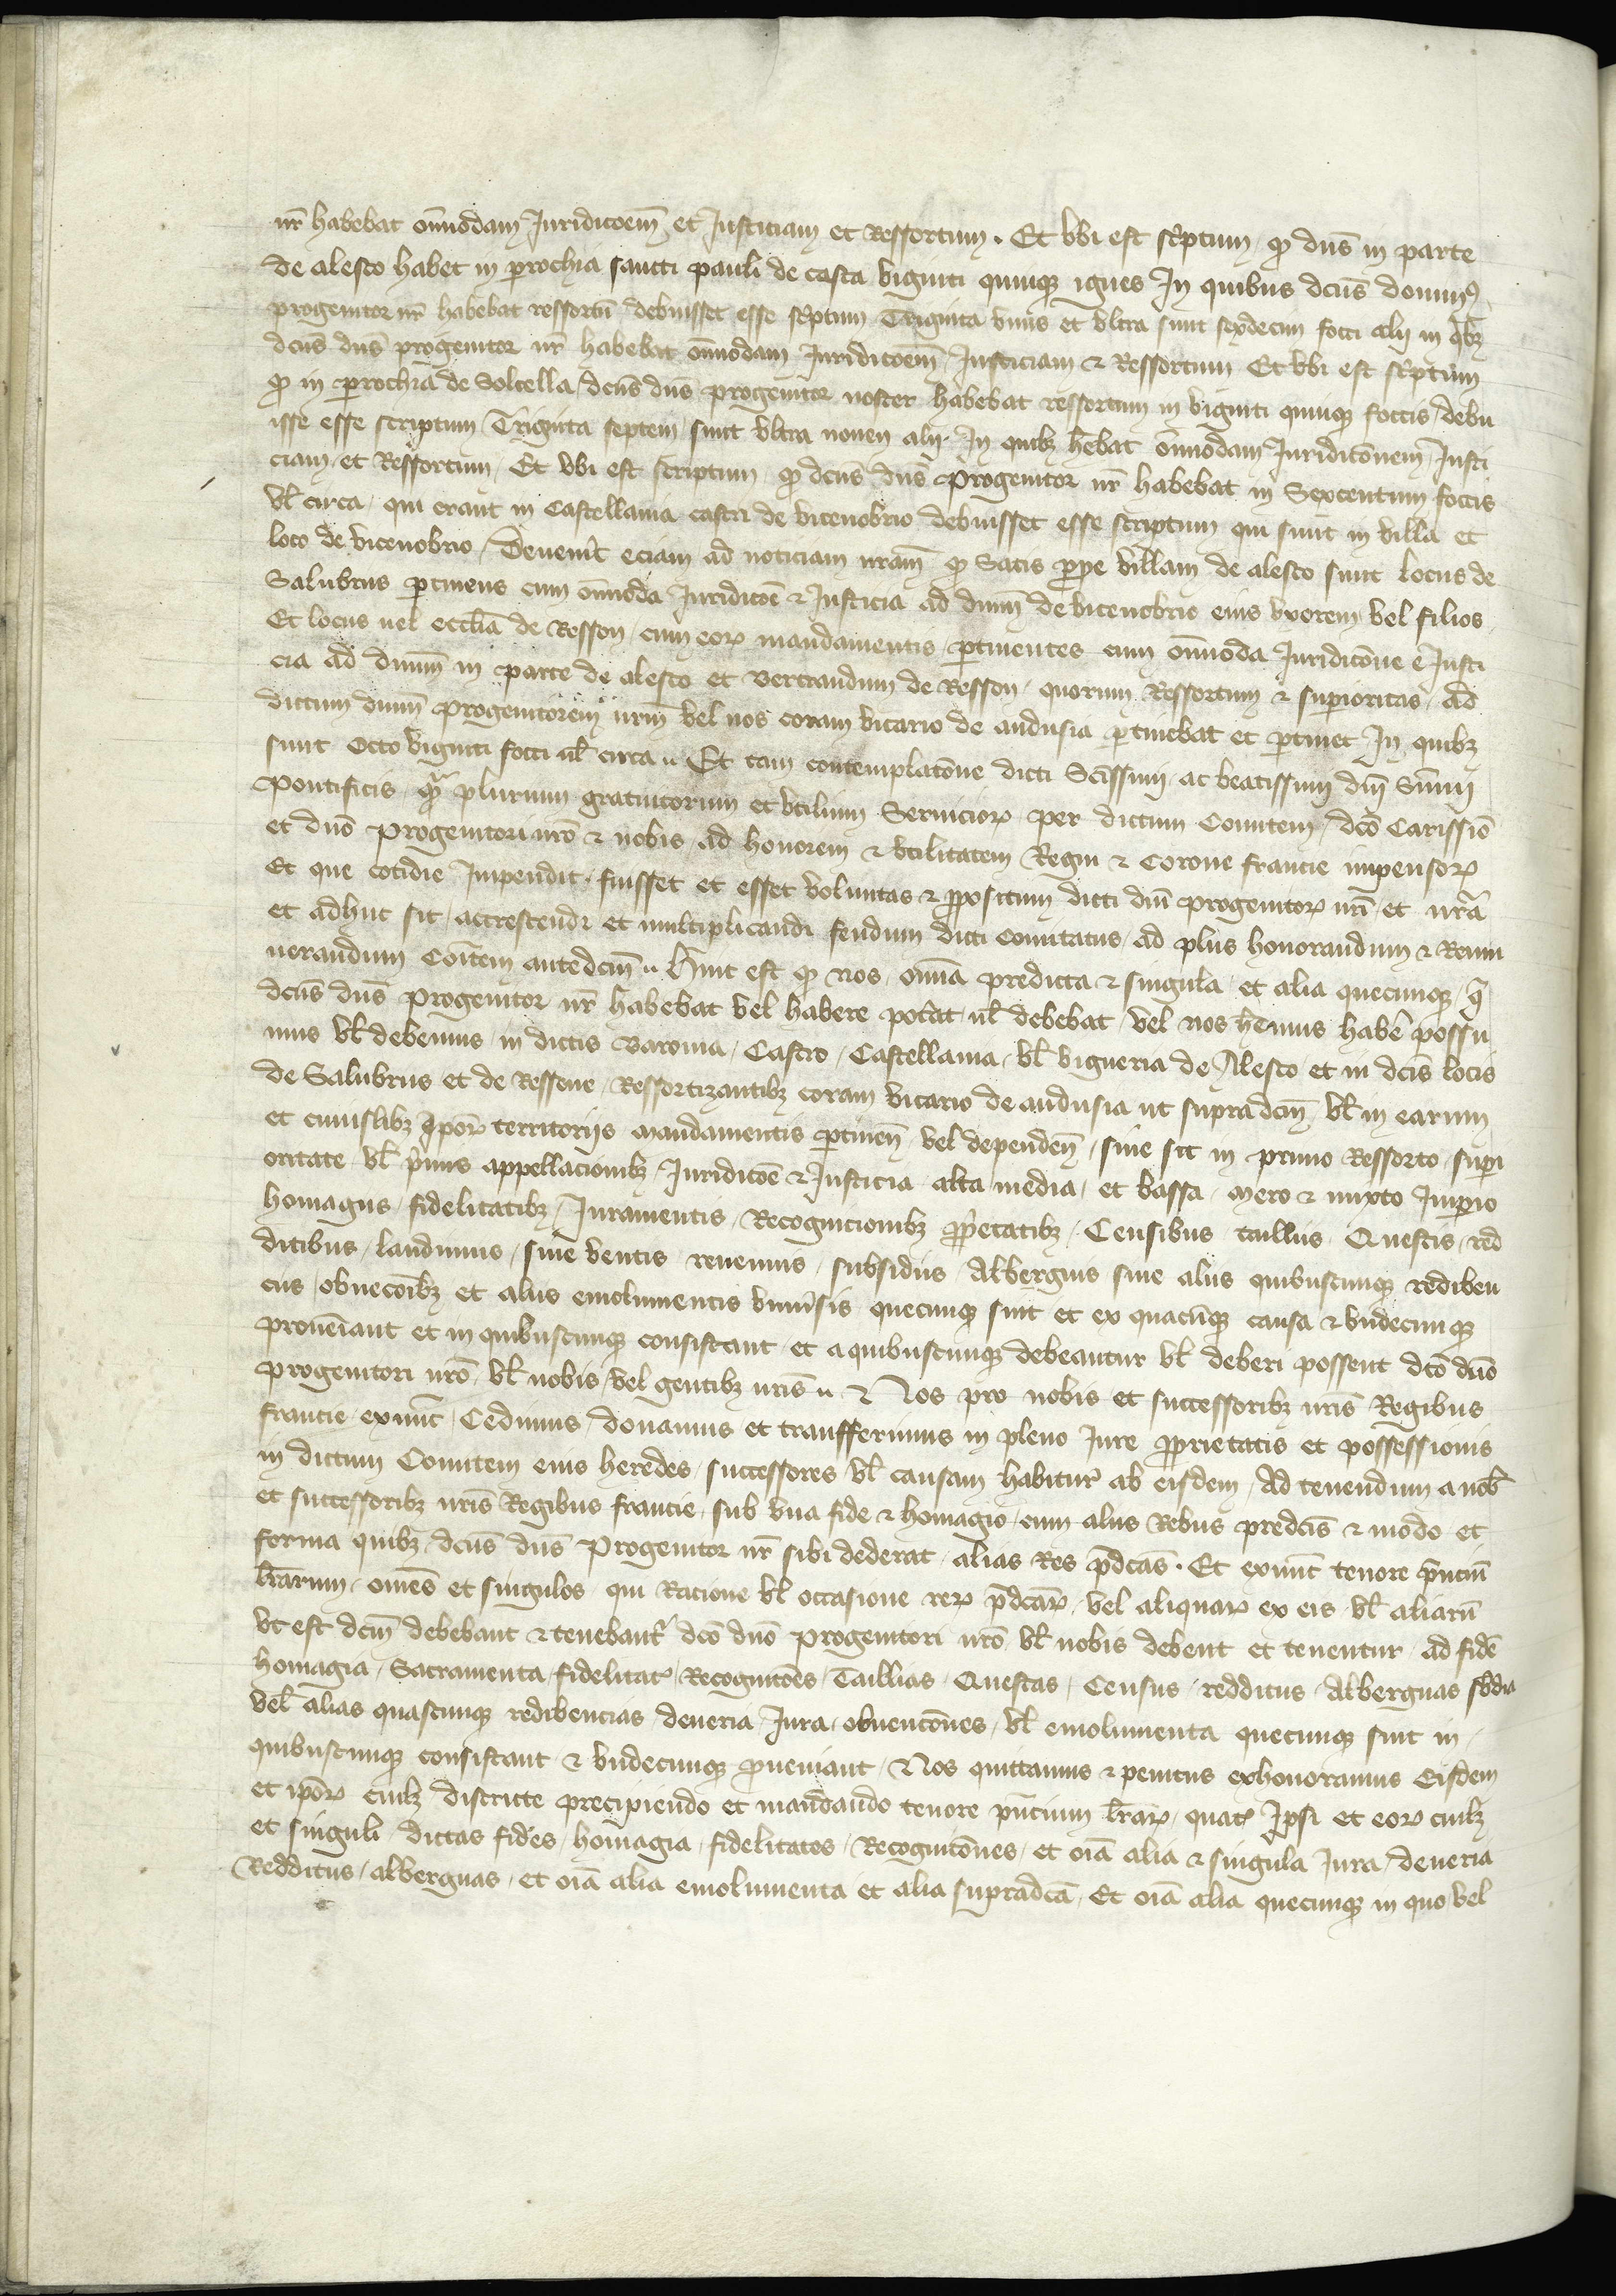 nr̃ habebat om̃nodam Juridicoem̃ et Justiciam et Ressortum . Et vbi est sc̃ptum / ꝙ dns̃ in parte
de alesto habet in ꝑrochia sancti pauli de costa viginti quinqꝫ ignes In quibus dcũs dominꝰ
progenitor nr̃ habebat ressortũ debuisset esse sc̃ptum Triginta vnus et vltra sunt sexdecim focci alij in qͥbꝫ
dcũs dns̃ progenitor nr̃ habebat om̃nodam Juridicoẽm Justiciam ⁊ Ressortum Et vbi est sc̃ptum
ꝙ in ꝑrochia de Solcella / dcũs dns̃ progenitor noster habebat ressortum in viginti quinqꝫ foccis debu
isse esse scriptum Triginta septem / sunt vltra novem alij . In quibꝫ hẽbat om̃nodam Juridicõnem Justi
ciam et Ressortum / Et vbi est scriptum / ꝙ dcũs dns̃ progenitor nr̃ habebat in Sexcentum foccis
vl̃ circa / qui erant in Castellania castri de vicenobrio debuisset esse scriptum qui sunt in villa et
loco de vicenobrio / Devenit̃ eciam ad noticiam nrãm ꝙ Satis ꝓpe villam de alesto sunt locus de
Salubrus ꝑtinens cum om̃noda Juridicoẽ ⁊ Justicia ad dnm̃ de vicenobrio eius vxorem vel filios /
Et locus uel ecclĩa de Resson / cum eoꝝ mandamentis / ꝑtinentes cum om̃noda Juridicõne e Justi
cia ad dnm̃ in parte de alesto et Bertrandum de Resson / quorum Ressortum ⁊ suꝑioritas / ad
dictum dnm̃ progenitorem nrm̃ vel nos coram vicario de andusia ꝑtinebat et ꝑtinet In quibꝫ
sunt Octo viginti focci ul̃ circa .. Et tam contemplatõne dicti Scĩssimi ac beatissimi dnĩ Sum̃i
Pontificis / qͣ̃ plurium gratuitorum et vtilium Servicioꝝ per dictum Comitem / dcõ Carissiõ
et dnõ progenitori nrõ ⁊ nobis ad honorem ⁊ vtilitatem Regni ⁊ Corone francie impensoꝝ
Et que cotidie Impendit . fuisset et esset voluntas ⁊ ꝓpositum dicti dnĩ progenitoꝝ nrĩ et nrã
et adhuc sit / accrescendi et multiplicandi feudum dicti Comitatus / ad plus honorandum ⁊ Remu
nerandum Coĩtem antedcm̃ .. Hinc est ꝙ nos / om̃ia predicta ⁊ singula / et alia quecunqꝫ / q̃
dcũs dns̃ Progenitor nr̃ habebat vel habere potãt ul̃ debebat / vel nos hẽmus habẽ possu
mus vl̃ debemus in dictis Baronia / Castro / Castellania / vl̃ vigueria de Alesto / et in dcĩs locis
de Salubrus et de Ressone / Ressortizantibꝫ coram vicario de andusia ut supradcm̃ / vl̃ in earum
et cuiuslibꝫ Ipoꝝ̃ territorijs mandamentis ꝑtineñ vel dependeñ / siue sit in primo Ressorto / suꝑi
oritate vl̃ p̃mis appellacionibꝫ / Juridicoẽ ⁊ Justicia alta media / et bassa / Mero ⁊ mixto Imꝑio
homagiis / fidelitatibꝫ / Iuramentis / Recognicionibꝫ ꝓp̃etatibꝫ / Censibus taillus Questis / red
ditibus / laudimus / siue ventis / revenuis / subsidiis / Albergiis siue aliis quibuscunqꝫ redibeu
ciis / obuecõibꝫ et aliis emolumentis vniũsis quecunqꝫ sint et ex quacũqꝫ causa ⁊ vndecunqꝫ
proueiãnt et in quibuscunqꝫ consistant / et a quibuscunqꝫ debeantur vl̃ deberi possent dcõ dnõ
progenitori nrõ vl̃ nobis / vel gentibꝫ nrĩs .. ⁊ Nos pro nobis et successoribꝫ nrĩs Regibus
francie / exnũc / Cedimus / donamus et transfferimus in pleno Iure ꝓprietatis et possessionis
in dictum Comitem eius heredes / successores vl̃ causam habitur̃ ab eisdem / Ad tenendum a nob̃
et successoribꝫ nrĩs Regibus francie / sub vna fide ⁊ homagio / cum aliis Rebus predcĩs ⁊ modo et
forma quibꝫ / dcũs dns̃ Progenitor nr̃ sibi dederat / alias Res p̃dcãs . Et exnũc tenore p̃nciũ
lrãrum / omẽs et singulos qui Racione vl̃ occasione reꝝ p̃dcãꝝ / vel aliquaꝝ ex eis vl̃ aliarũ
vt est dcm̃ debebant ⁊ tenebant̃ dcõ dnõ Progenitori nrõ vl̃ nobis debent et tenentur / ad fidẽ
homagia / Sacramenta fidelitat̃ / Recognitões / Taillias / Questas / Census / redditus / Alberguas sb̃dia
vel̃ alias quascunqꝫ redibencias / deueria / Iura / obuentõnes / vl̃ emolumenta quecunqꝫ sint in /
quibuscunqꝫ consistant ⁊ vndecunqꝫ ꝓueniant / Nos quittamus ⁊ penitus exhonoramus Eisdem
et ipõꝝ cuilꝫ districte precipiendo et mandando tenore pñcium lrãꝝ / quat̃ Ipsi et eoꝝ cuilꝫ
et singuli / dictas fides / homagia / fidelitates / Recognitõnes / et oiã alia ⁊ singula Iura / deueria
Redditus / alberguas / et oiã alia emolumenta et alia supradcã / Et oiã alia quecunqꝫ in quo vel